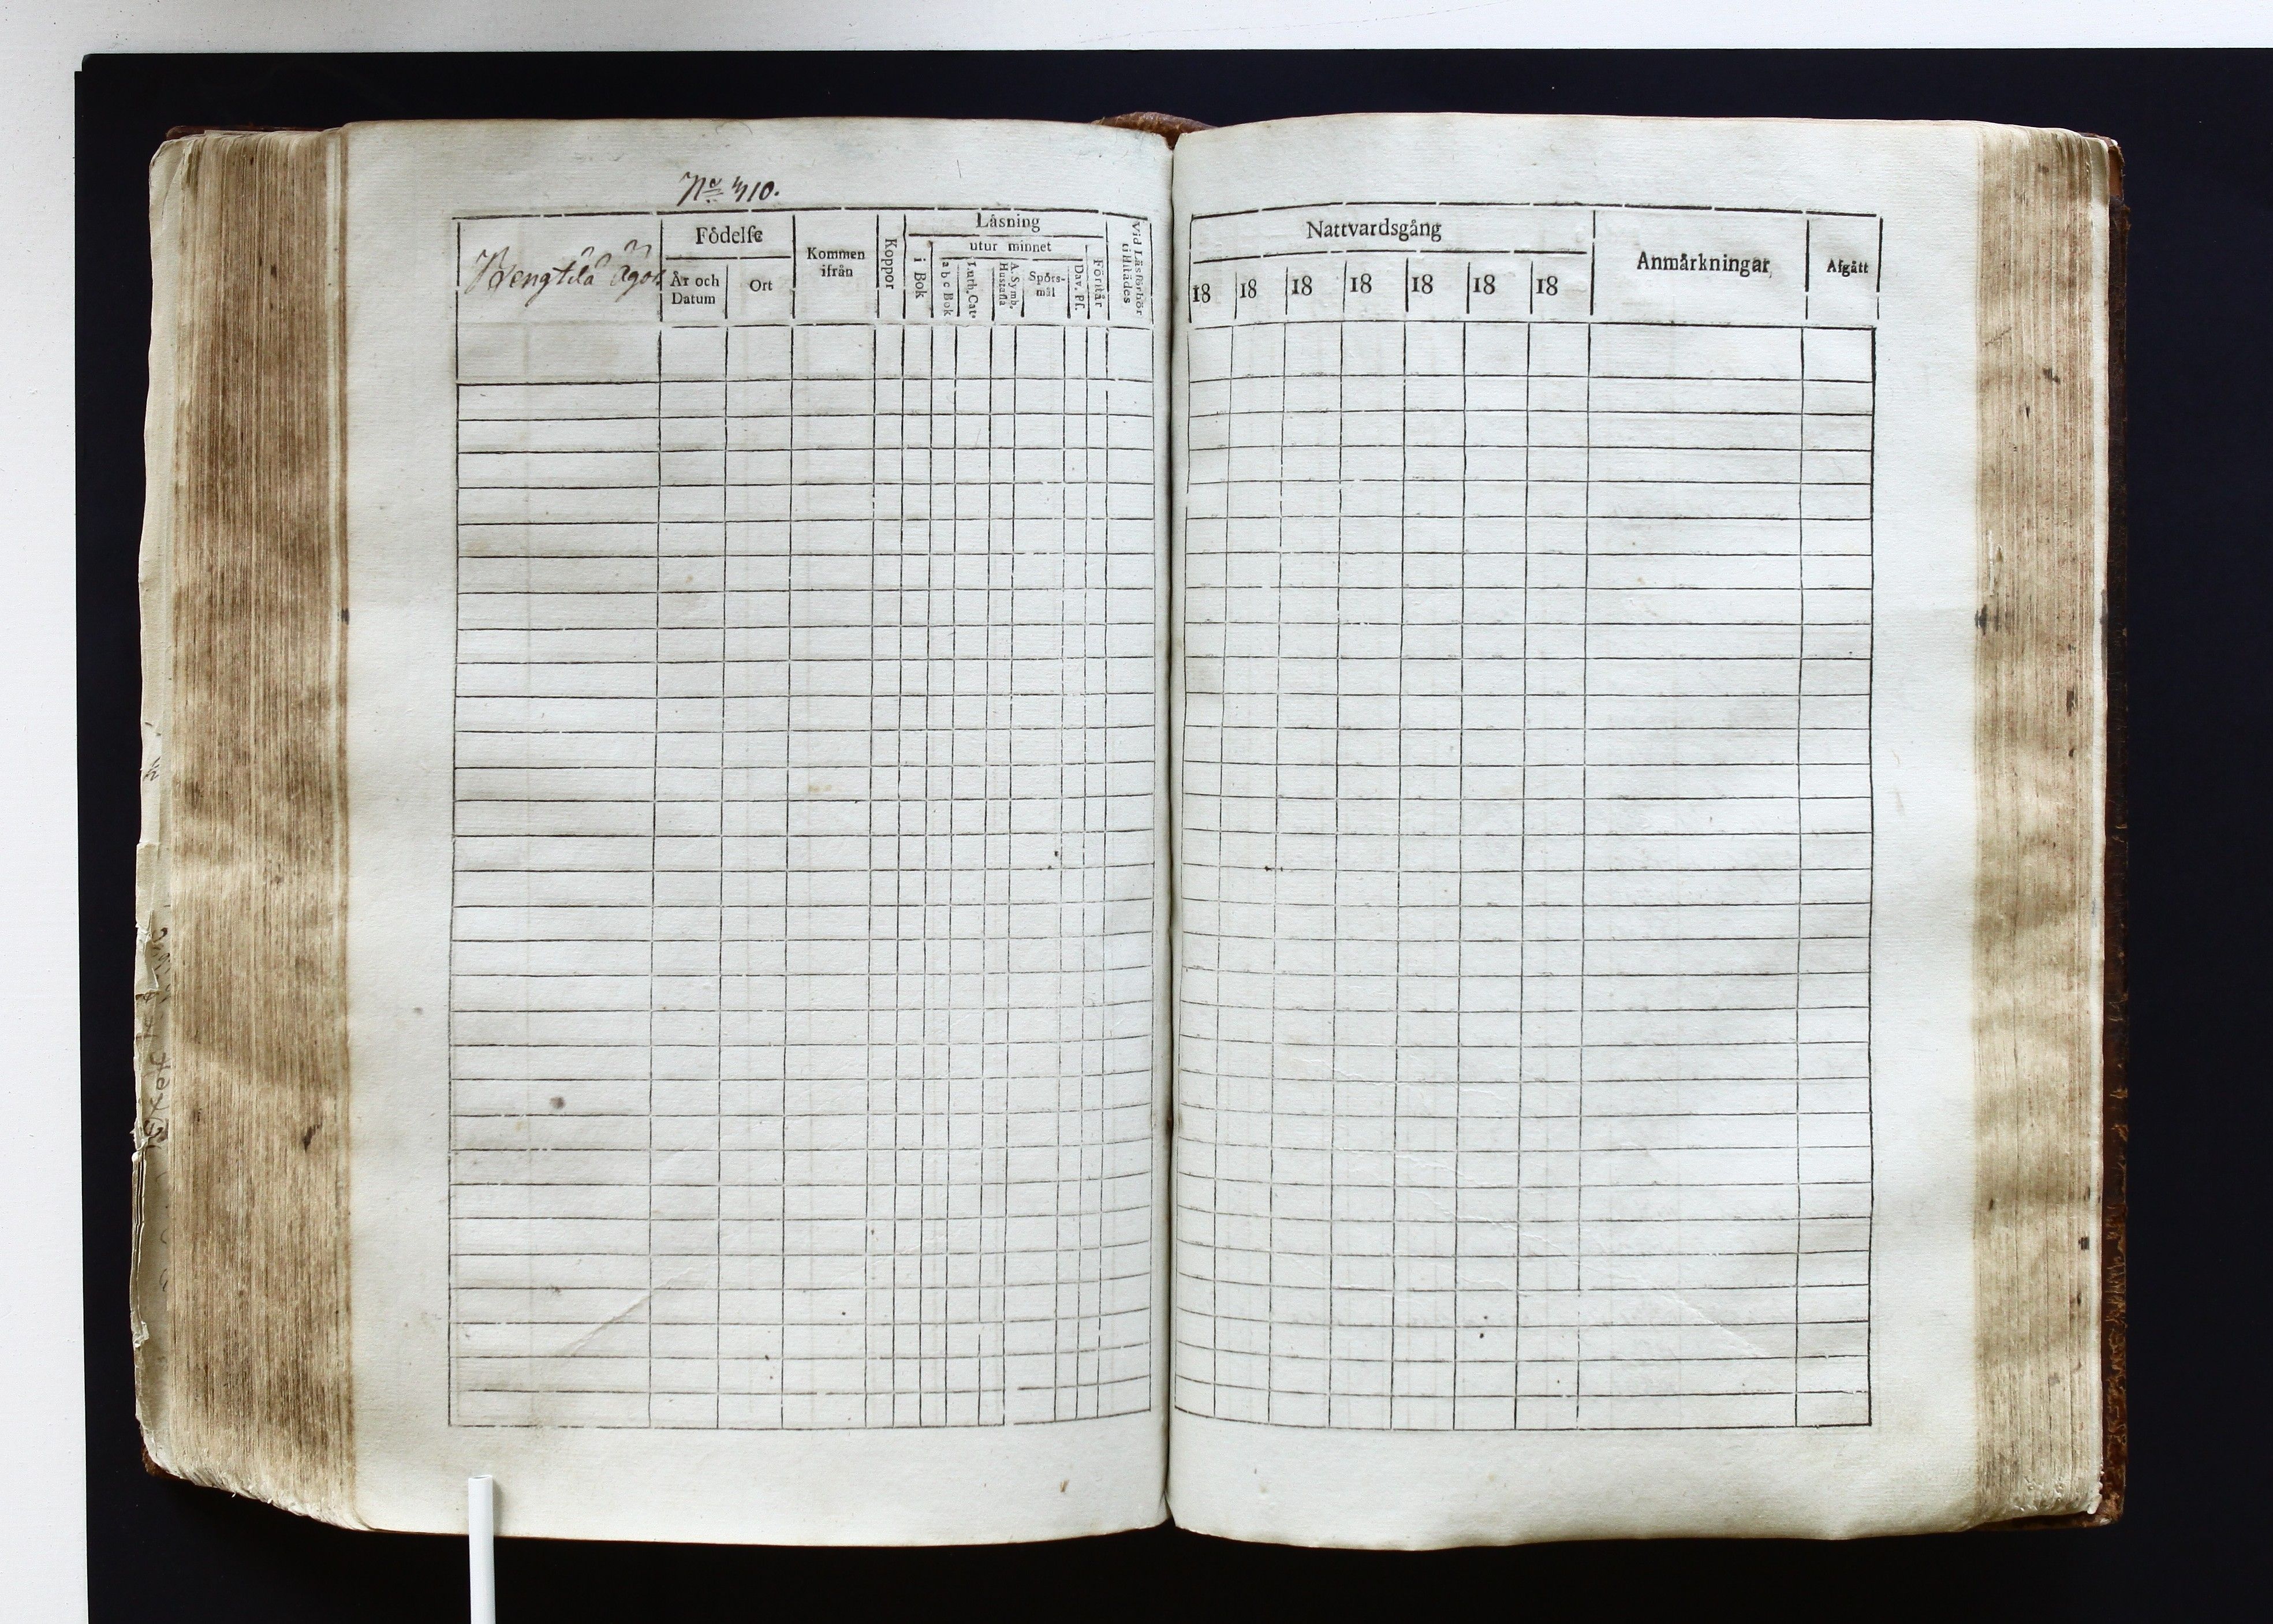 No 410.
Bengtilä ägor
Födelse
År och Datum
Ort
Kommen ifrån
Koppor
Läsning
i Bok
utur minnet
a b c Bok
Luth. Cat.
A. Symb. Hustafla
Spörs-mål
Dav. Ps.
Förstår
Vid Läsförhör
Nattvardsgång
18 18 18 18 18 18 18
Anmärkningar
Afgått